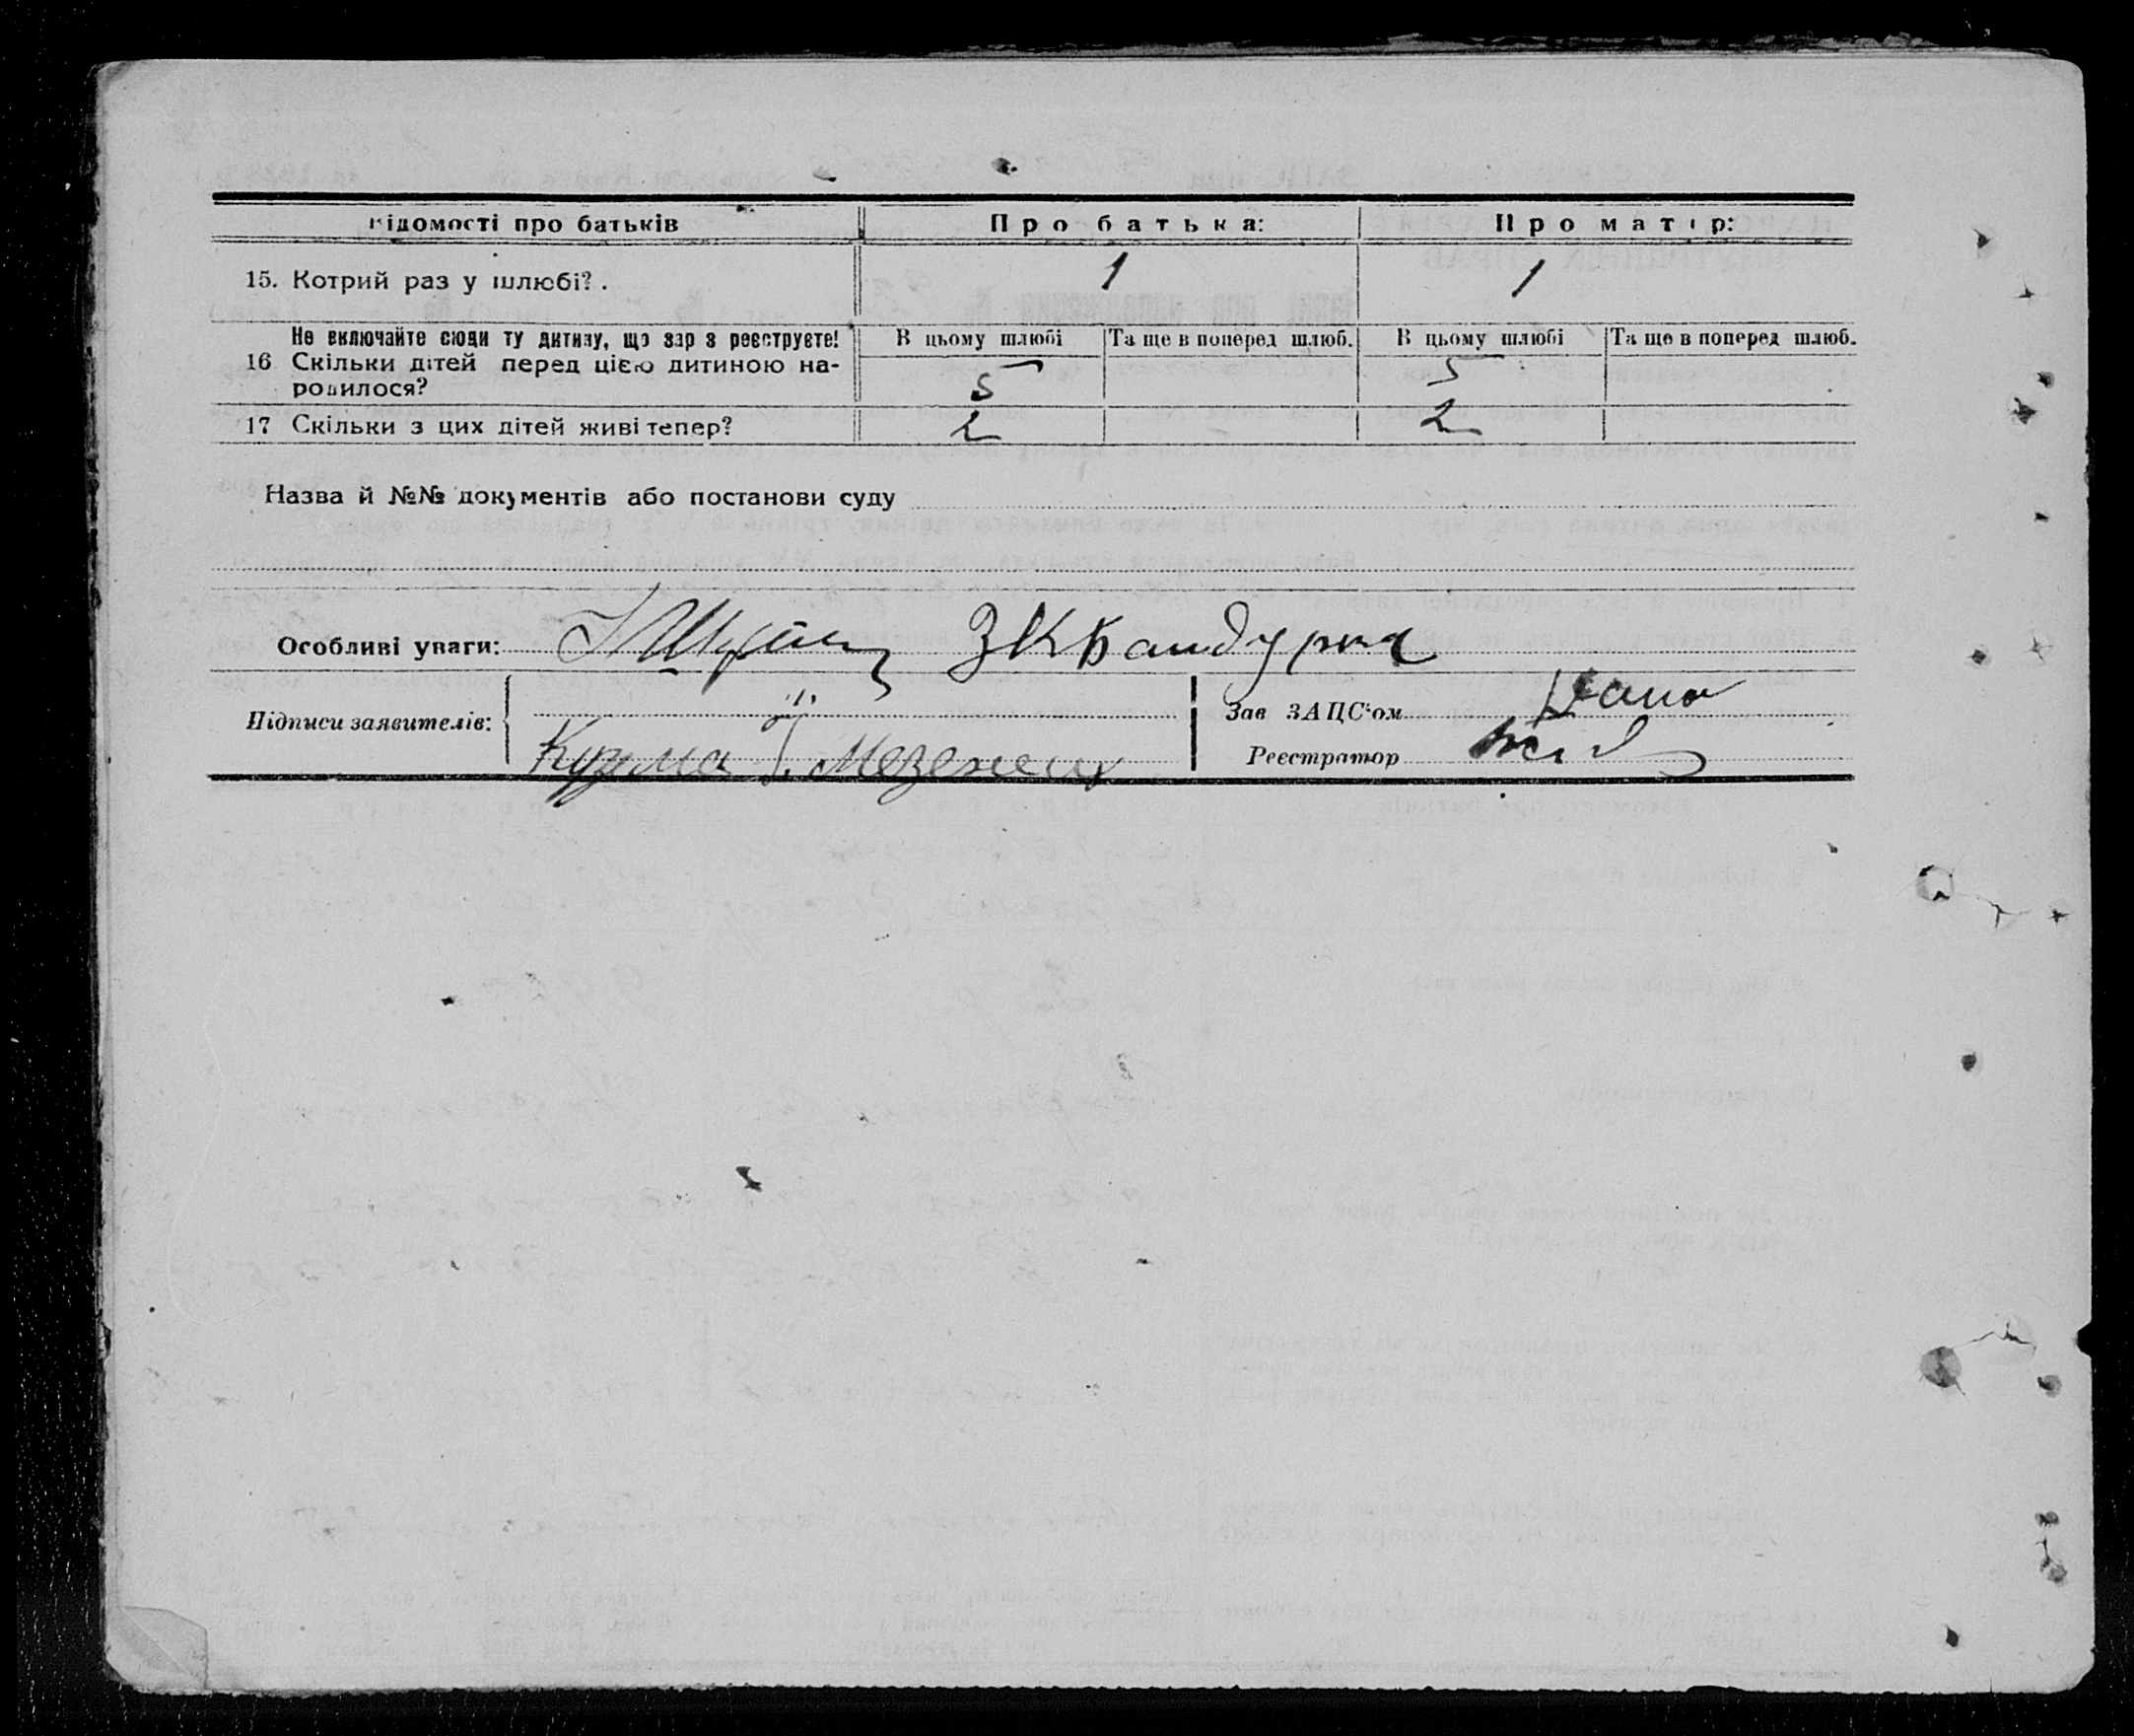 Відомості про батьків Про батька: Про матір:
15. Котрий раз у шлюбі? . 1 1
Не включайте сюди ту дитину, що зараз реєструєте! В цьому шлюбі Та ще в поперед шлюб. В цьому шлюбі Та ще в поперед шлюб.
16 Скільки дітей перед цією дитиною на-
родилося? 5 5
17 Скільки з цих дітей живі тепер? 2 2
Назва й №№ документів або постанови суду
Особливі уваги: ЗК Бандурка
Підписи заявителів: Зав ЗАЦС'ом
Кузма І. Мезенец Реєстратор